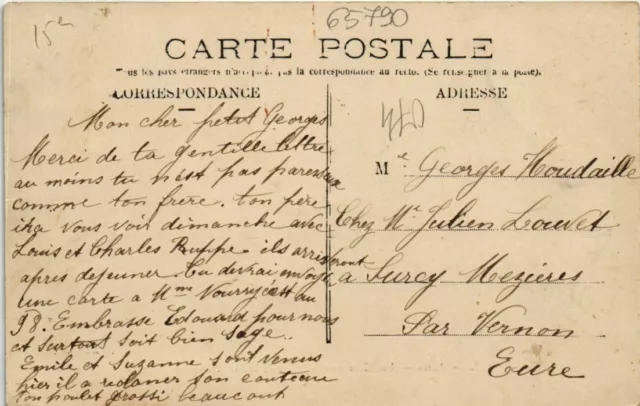 15en
65790
CARTE POSTALE
Tous les pays étrangers n'acceptent pas la correspondance au recto. (Se renseigner à la poste).
CORRESPONDANCE
ADRESSE
440
Mon cher petit Georges
Merci de ta gentille lettre
au moins tu n'est pas paresseux
comme ton frere. ton père
ira vous voir dimanche avec
Louis et Charles Ruppe. ils arriveront
apres dejeuner. tu devrai envoyer
une carte a Mme Nourry
P8. Embrasse Edouard pour nous
et surtout soit bien sage.
Emile et Suzanne sont venus
hier il a reclamer son couteau
ton poulet grossi beaucoup
Me Georges Houdaille
Chez Mr Julien Louvet
a Surcy Mezières
Par Vernon
Eure